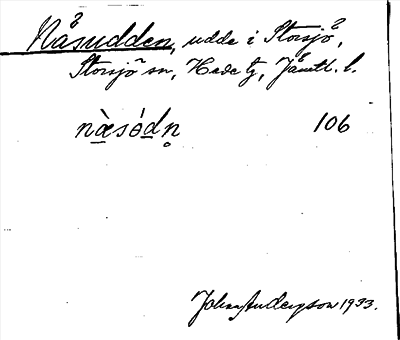 Nåsudden, udde i Storsjö,
Storsjö sn, Hede tg, Jämtl. l.
næ̀sódn̥ 106
John Anderson 1933.